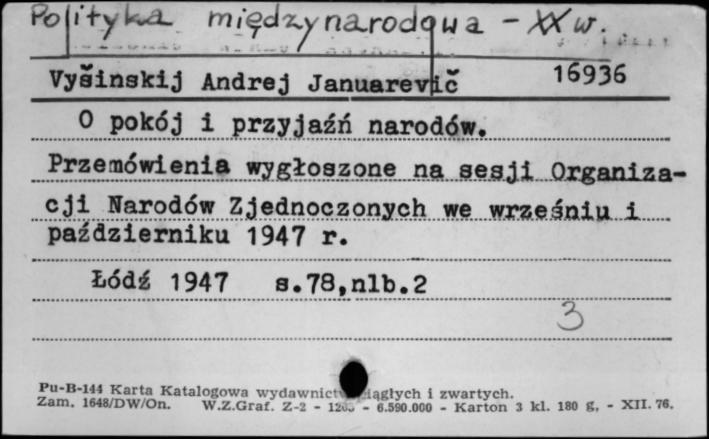 Polityka międzynarodowa - XX w.
Vyšinskij Andrej Januarevič 16936
O pokój i przyjaźń narodów.
Przemówienia wygłoszone na sesji Organiza-
cji Narodów Zjednoczonych we wrześniu i
październiku 1947 r.
Łódź 1947 s.78,nlb.2
3
Pu-B-144 Karta Katalogowa wydawnictw ciągłych i zwartych.
Zam. 1648/DW/On. W.Z.Graf. Z-2 - - 6.590.000 - Karton 3 kl. 180 g. - XII. 76.